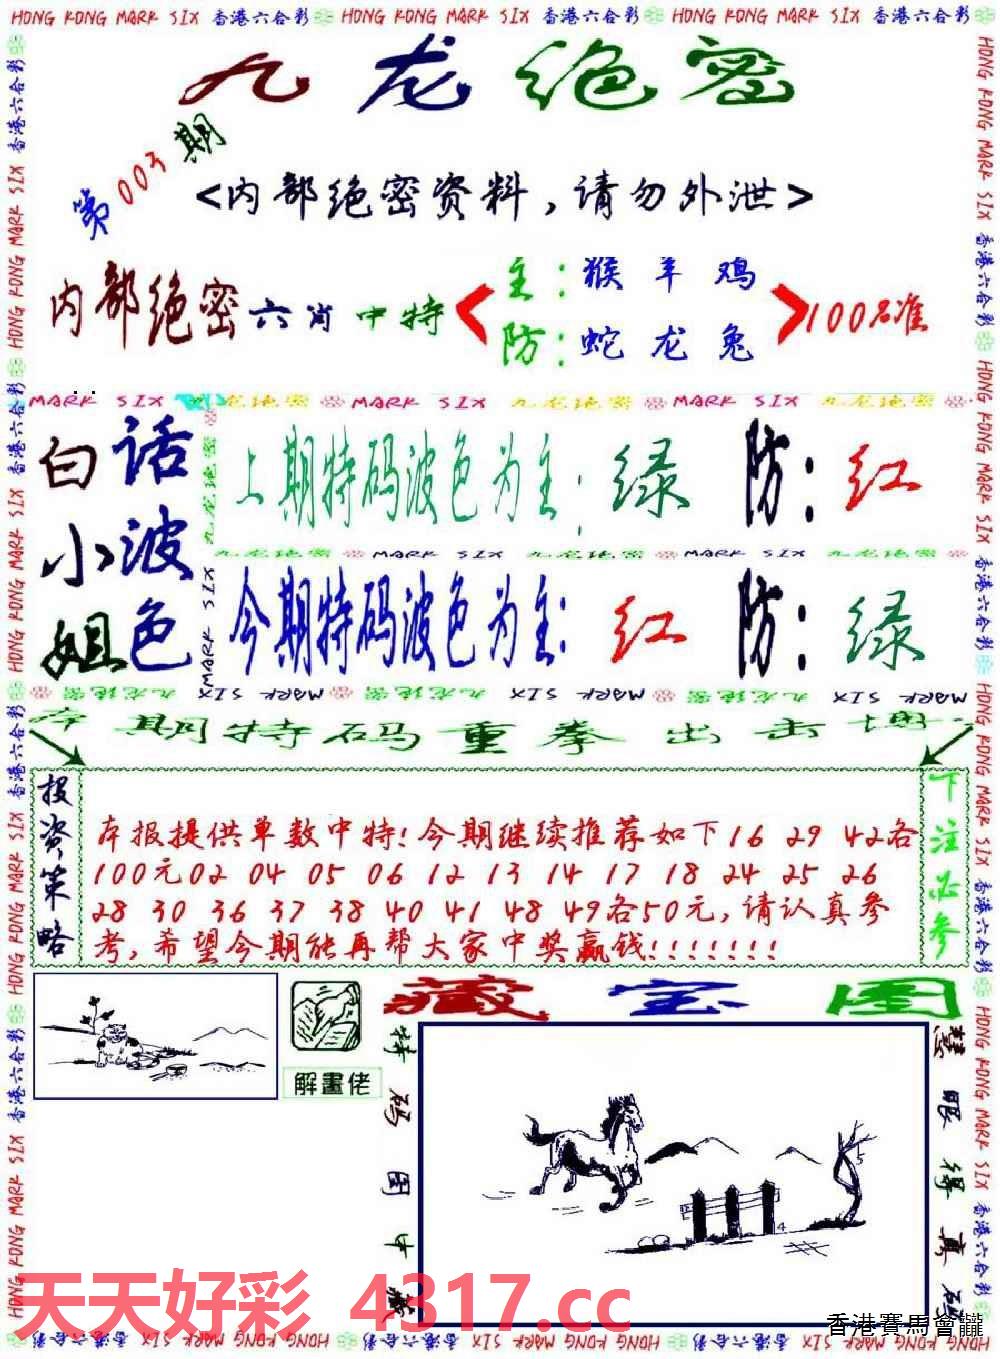 HONG KONG MARK SIX 香港六合彩 HONG KONG MARK SIX 香港六合彩 HONG KONG MARK SIX 香港六合彩
九龙绝密
第003期
<内部绝密资料,请勿外泄>
内部绝密六肖中特
主:猴羊鸡
防:蛇龙兔
100%准
MARK SIX 九龙绝密 MARK SIX 九龙绝密 MARK SIX 九龙绝密
白小姐
话波色
上期特码波色为主: 绿 防: 红
九龙绝密 MARK SIX 九龙绝密 MARK SIX 九龙绝密
今期特码波色为主: 红 防: 绿
MARK SIX 九龙绝密 MARK SIX 九龙绝密 MARK SIX 九龙绝密
本期特码重拳出击
投资策略
本报提供单数中特!今期继续推荐如下16 29 42各
100元02 04 05 06 12 13 14 17 18 24 25 26
28 30 36 37 38 40 41 48 49各50元,请认真参
考,希望今期能再帮大家中奖赢钱!!!!!!!
下注必参
藏宝图
解畫佬
特码图中藏
慧眼得真码
5
4
天天好彩 4317.cc
香港賽馬會